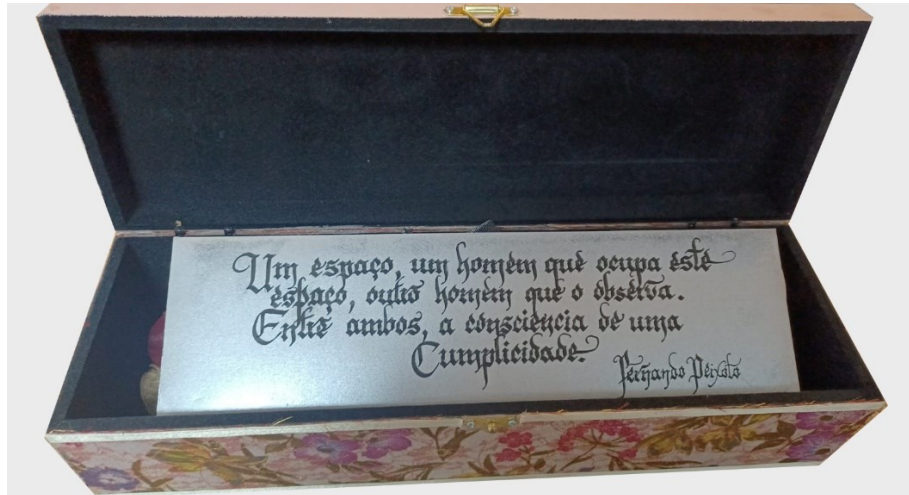 Um espaço, um homem que ocupa este
espaço, outro homem que o observa.
Entre ambos, a consciencia de uma
Cumplicidade.
Fernando Peixoto